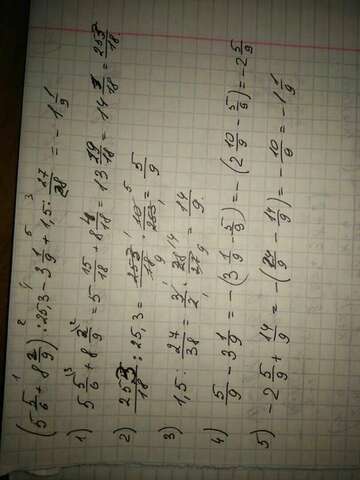 (5 5/6 + 8 2/9) : 25,3 - 3 1/9 + 1,5 : 27/28 = - 1 1/9
1) 5 5/6 + 8 2/9 = 5 15/18 + 8 4/18 = 13 19/18 = 14 1/18 = 253/18
2) 253/18 : 25,3 = 253/18 · 10/253 = 5/9
3) 1,5 : 27/38 = 3/2 · 28/27 = 14/9
4) 5/9 - 3 1/9 = -(3 1/9 - 5/9) = -(2 10/9 - 5/9) = -2 5/9
5) -2 5/9 + 14/9 = -(24/9 - 14/9) = - 10/9 = -1 1/9